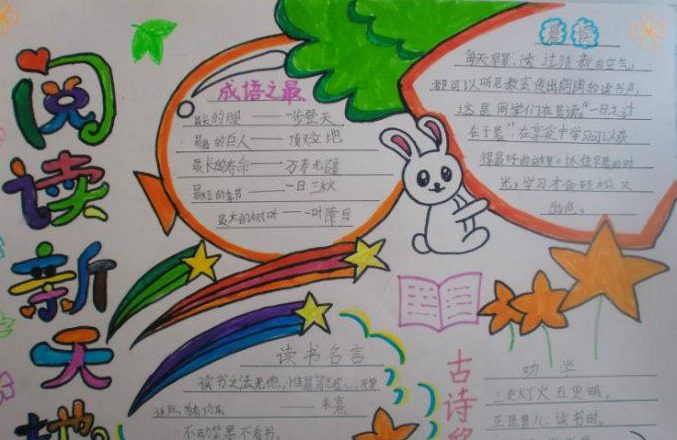 阅读新天地
成语之最
最长的腿——一步登天
最高的巨人——顶天立地
最长的寿命——万寿无疆
最短的季节——一日三秋
最大的树叶——一叶障目
晨读
每天早晨,
都可以听见教室传出朗朗的读书声,
这是同学们在晨读。"一日之计
在于晨"在享受中学习可以获
得最好的效果。抓住早晨的时
光,学习才会轻松又
出色。
读书名言
读书之法无他,
朱熹
不动笔墨不看书。
古诗
劝学
三更灯火五更鸡,
正是男儿读书时。